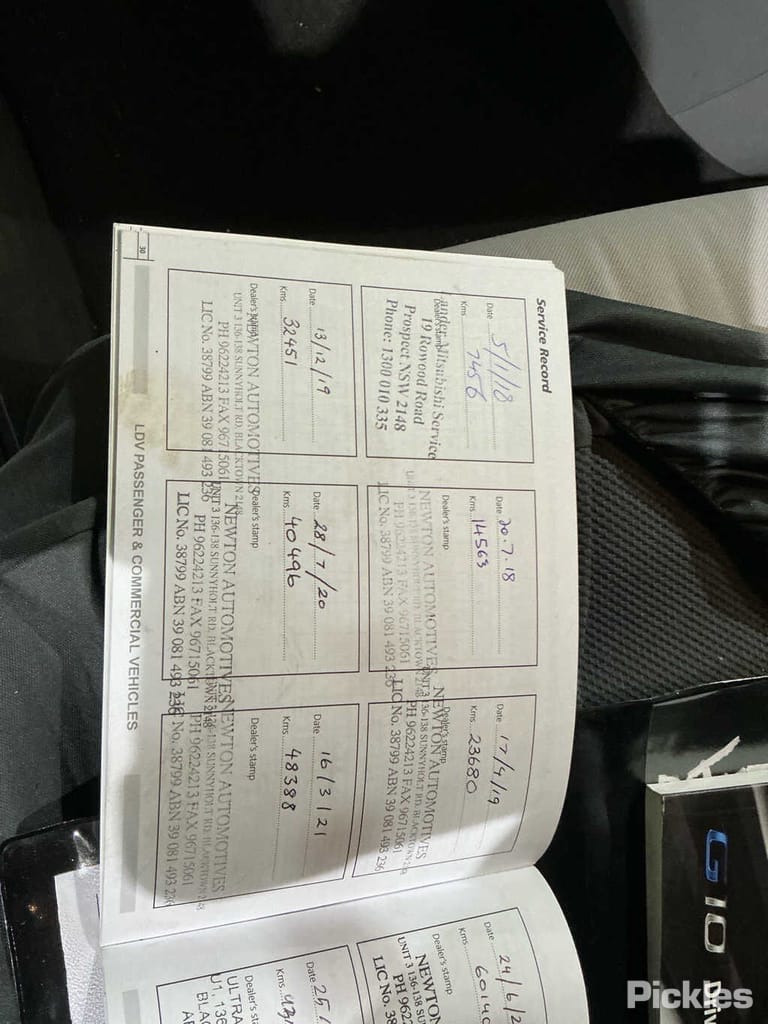 Service Record
Date 5/1/18
Kms 7456
Dealer's stamp
ander Mitsubishi Service
19 Rowood Road
Prospect NSW 2148
Phone: 1300 010 335
Date 20.7.18
Kms 14563
Dealer's stamp
NEWTON AUTOMOTIVES
UNIT 3 136-138 SUNNYHOLT RD, BLACKTOWN 2148
PH 96224213 FAX 96715061
LIC No. 38799 ABN 39 081 493 236
Date 17/4/19
Kms 23680
Dealer's stamp
NEWTON AUTOMOTIVES
UNIT 3 136-138 SUNNYHOLT RD, BLACKTOWN 2148
PH 96224213 FAX 96715061
LIC No. 38799 ABN 39 081 493 236
Date 13/12/19
Kms 32451
Dealer's stamp
NEWTON AUTOMOTIVES
UNIT 3 136-138 SUNNYHOLT RD, BLACKTOWN 2148
PH 96224213 FAX 96715061
LIC No. 38799 ABN 39 081 493 236
Date 28/7/20
Kms 40496
Dealer's stamp
NEWTON AUTOMOTIVES
UNIT 3 136-138 SUNNYHOLT RD, BLACKTOWN 2148
PH 96224213 FAX 96715061
LIC No. 38799 ABN 39 081 493 236
Date 16/3/21
Kms 48388
Dealer's stamp
NEWTON AUTOMOTIVES
UNIT 3 136-138 SUNNYHOLT RD, BLACKTOWN 2148
PH 96224213 FAX 96715061
LIC No. 38799 ABN 39 081 493 236
30
LDV PASSENGER & COMMERCIAL VEHICLES
Date 24/6/2
Kms 6014
Dealer's stamp
NEWTON
UNIT 3 136-138 SUN
PH 962
LIC No. 38
Date 25/
Kms
Dealer's sta
ULTRA
U1, 136
BLA
G10
Pickles